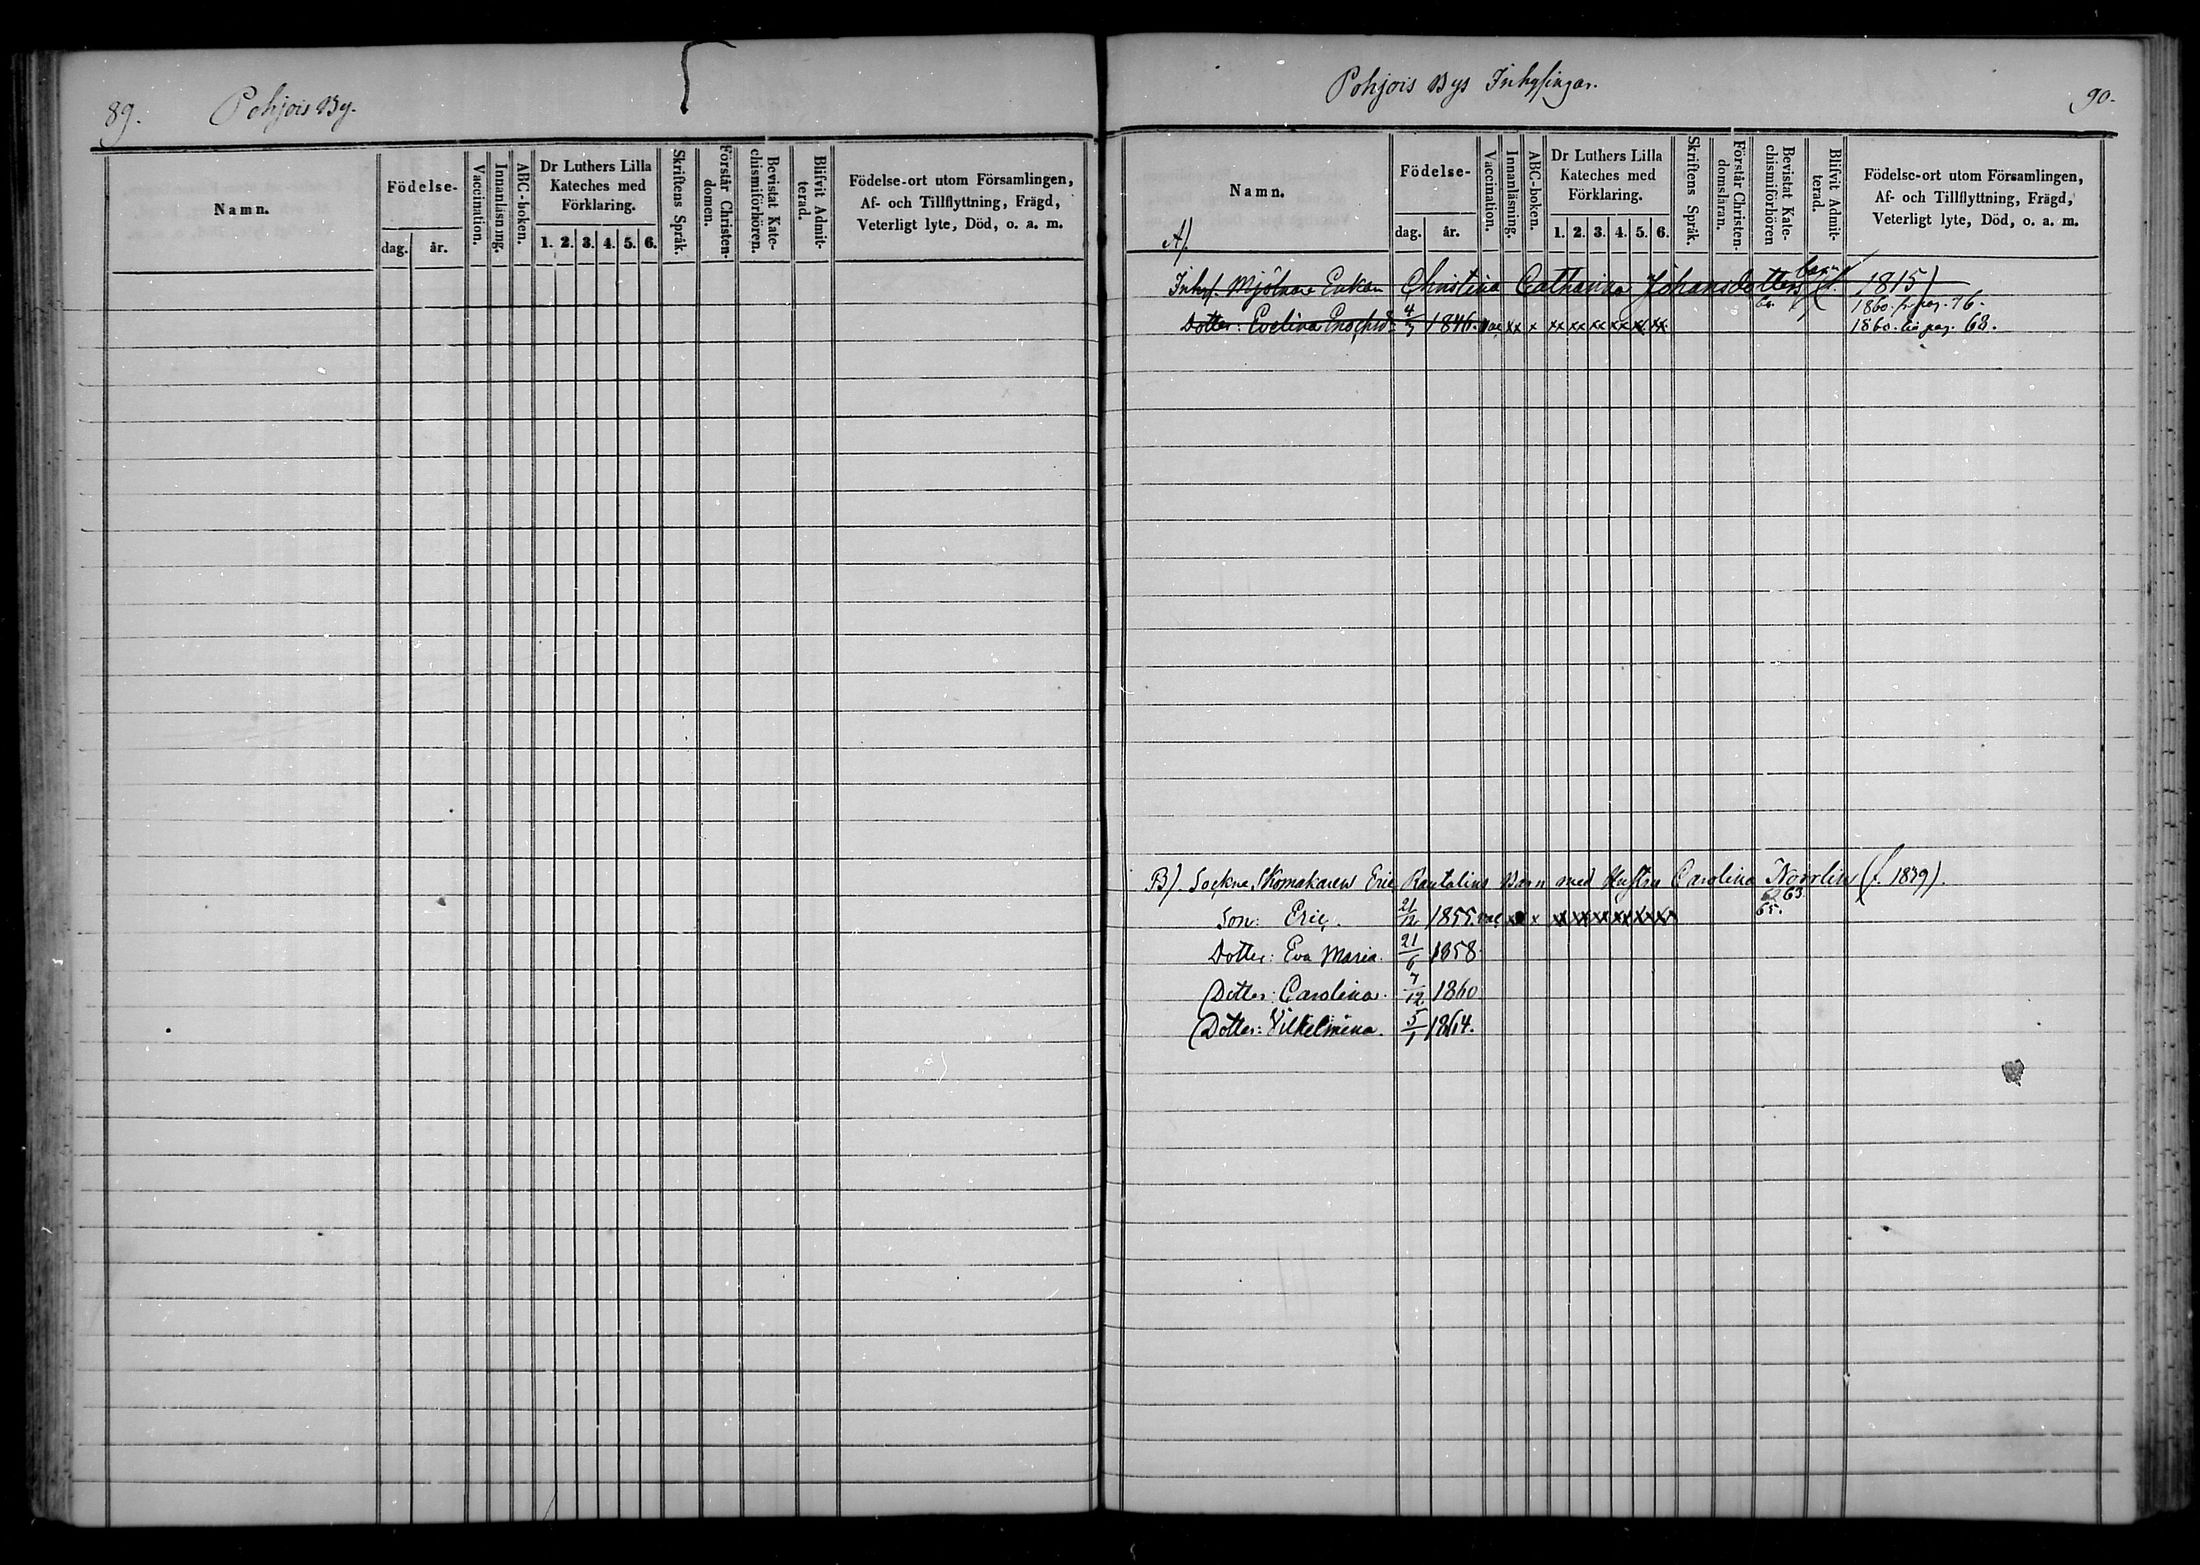 89.
Pohjois By.
Namn.
Födelse-
dag. år.
Vaccination.
Innanläsning.
ABC-boken.
Dr Luthers Lilla
Kateches med
Förklaring.
1. 2. 3. 4. 5. 6.
Skriftens Språk.
Förstår Christen-
domen.
Bevistat Kate-
chismiförhören.
Blifvit Admit-
terad.
Födelse-ort utom Församlingen,
Af- och Tillflyttning, Frägd,
Veterligt lyte, Död, o. a. m.
Pohjois Bys Inhysingar.
90.
Namn.
Födelse-
dag. år.
Vaccination.
Innanläsning.
ABC-boken.
Dr Luthers Lilla
Kateches med
Förklaring.
1. 2. 3. 4. 5. 6.
Skriftens Språk.
Förstår Christen-
domsläran.
Bevistat Kate-
chismiförhören
Blifvit Admit-
terad.
Födelse-ort utom Församlingen,
Af- och Tillflyttning, Frägd,
Veterligt lyte, Död, o. a. m.
A).
Inhys. Mjölnare Enkan Christina Catharina Johansdotters barn (f. 1815)
1860. fr. pag. 76.
Dotter: Evelina Enochsd. 4/3 1846. vac. xx x xx xx xx xx xx xx 60. 1860. till pag. 68.
B). Sockne Skomakaren Eric Rautalins Barn med Hustru Carolina Norrlin (f. 1839).
Son: Eric. 21/12 1855. vac x xx xx xx xx xx xx 63. 65.
Dotter: Eva Maria. 21/6 1858.
Dotter: Carolina. 7/12 1860
Dotter: Vilhelmina. 5/1 1864.